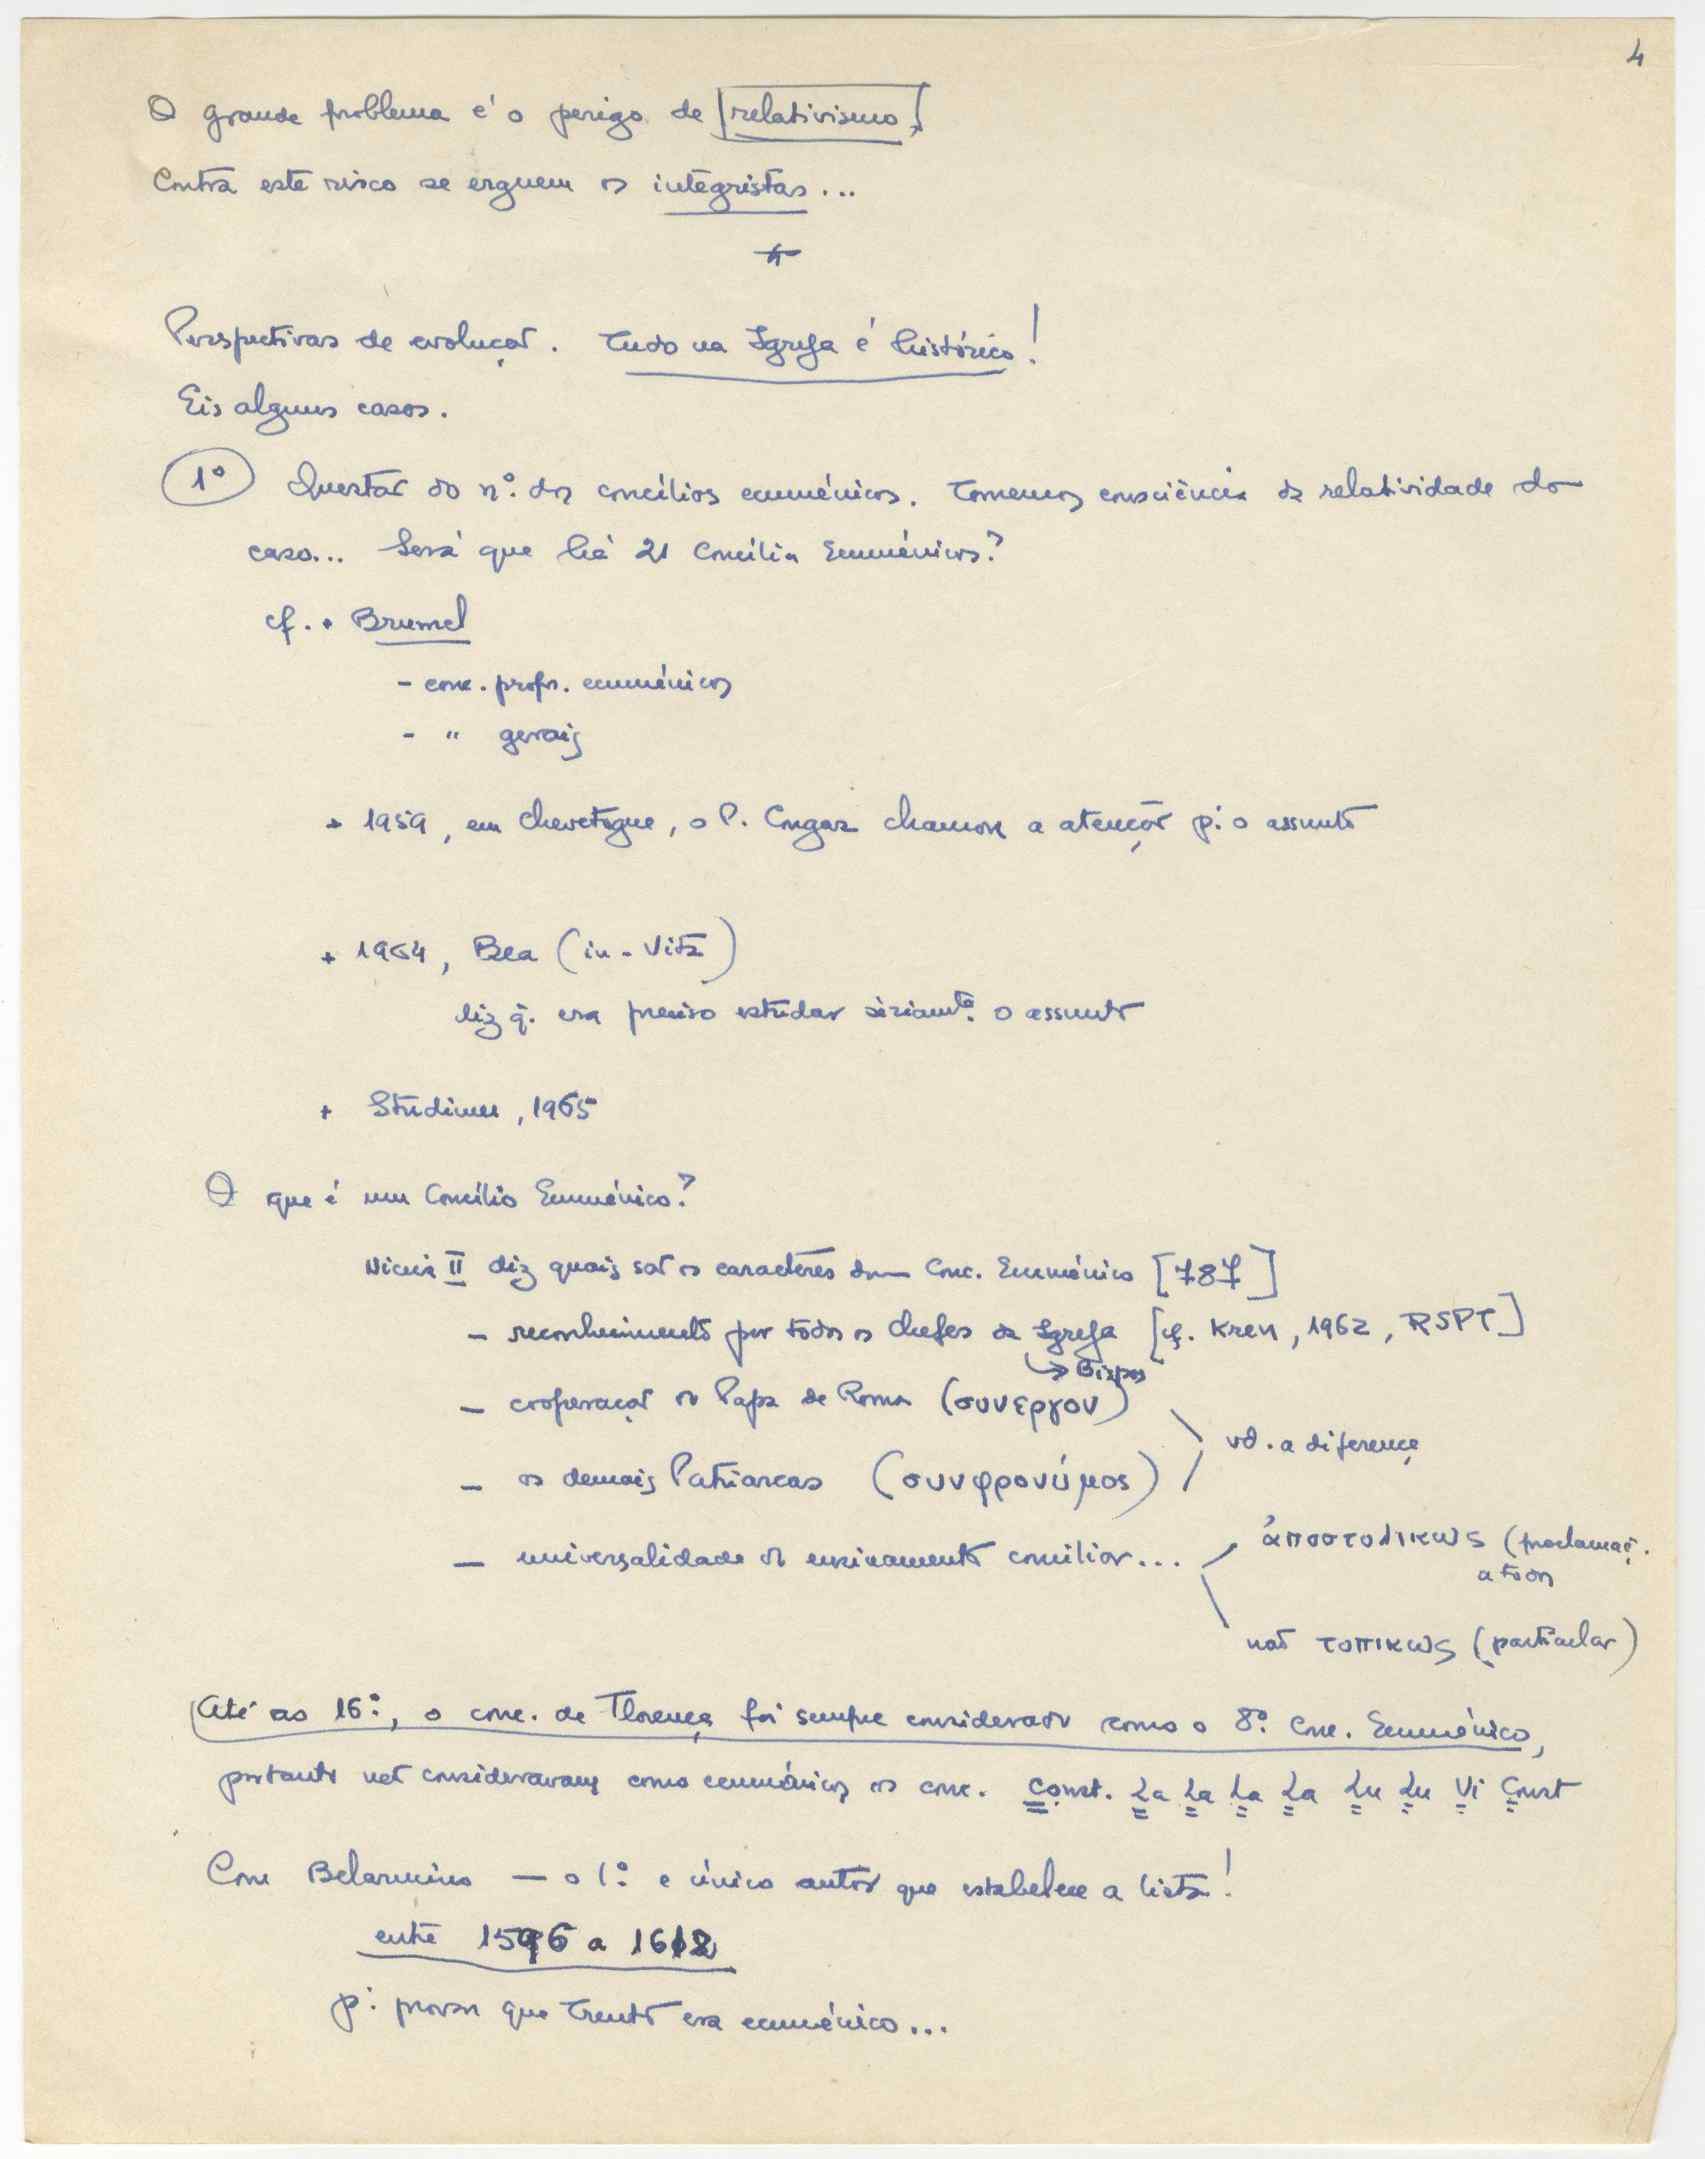 4
O grande problema é o perigo de relativismo!
Contra este risco se erguem os integristas...
*
Perspectivas de evolução. Tudo na Igreja é histórico!
Eis alguns casos.
1º Questão do nº. dos concílios ecuménicos. Tomemos consciência da relatividade do
caso... Será que há 21 Concílios Ecuménicos?
cf. + Brumel
- conc. propr. ecuménicos
- " gerais
+ 1959, em Chevetogne, o P. Congar chamou a atenção p. o assunto
+ 1964, Bea (in - Vita)
diz q. era preciso estudar sèriamte. o assunto
+ Studium, 1965
O que é um Concílio Ecuménico?
Niceia II diz quais são os caracteres dum Conc. Ecuménico [787]
- reconhecimento por todos os chefes da Igreja [cf. Kren, 1962, RSPT]
→ Bispos
- cooperação do Papa de Roma (συνεργον)
vd. a diferença
- os demais Patriarcas (συνφρονύμος)
- universalidade do ensinamento conciliar...
ἀποστολικως (proclamaç.
a todos
não τοπικως (particular)
Até ao 16º, o conc. de Florença foi sempre considerado como o 8º. Conc. Ecuménico,
portanto não consideravam como ecuménicos os conc. Const. La La La La Lu Lu Vi Const
Com Belarmino — o 1º. e único autor que estabelece a lista!
entre 1596 a 1612
p. provar que Trento era ecuménico...